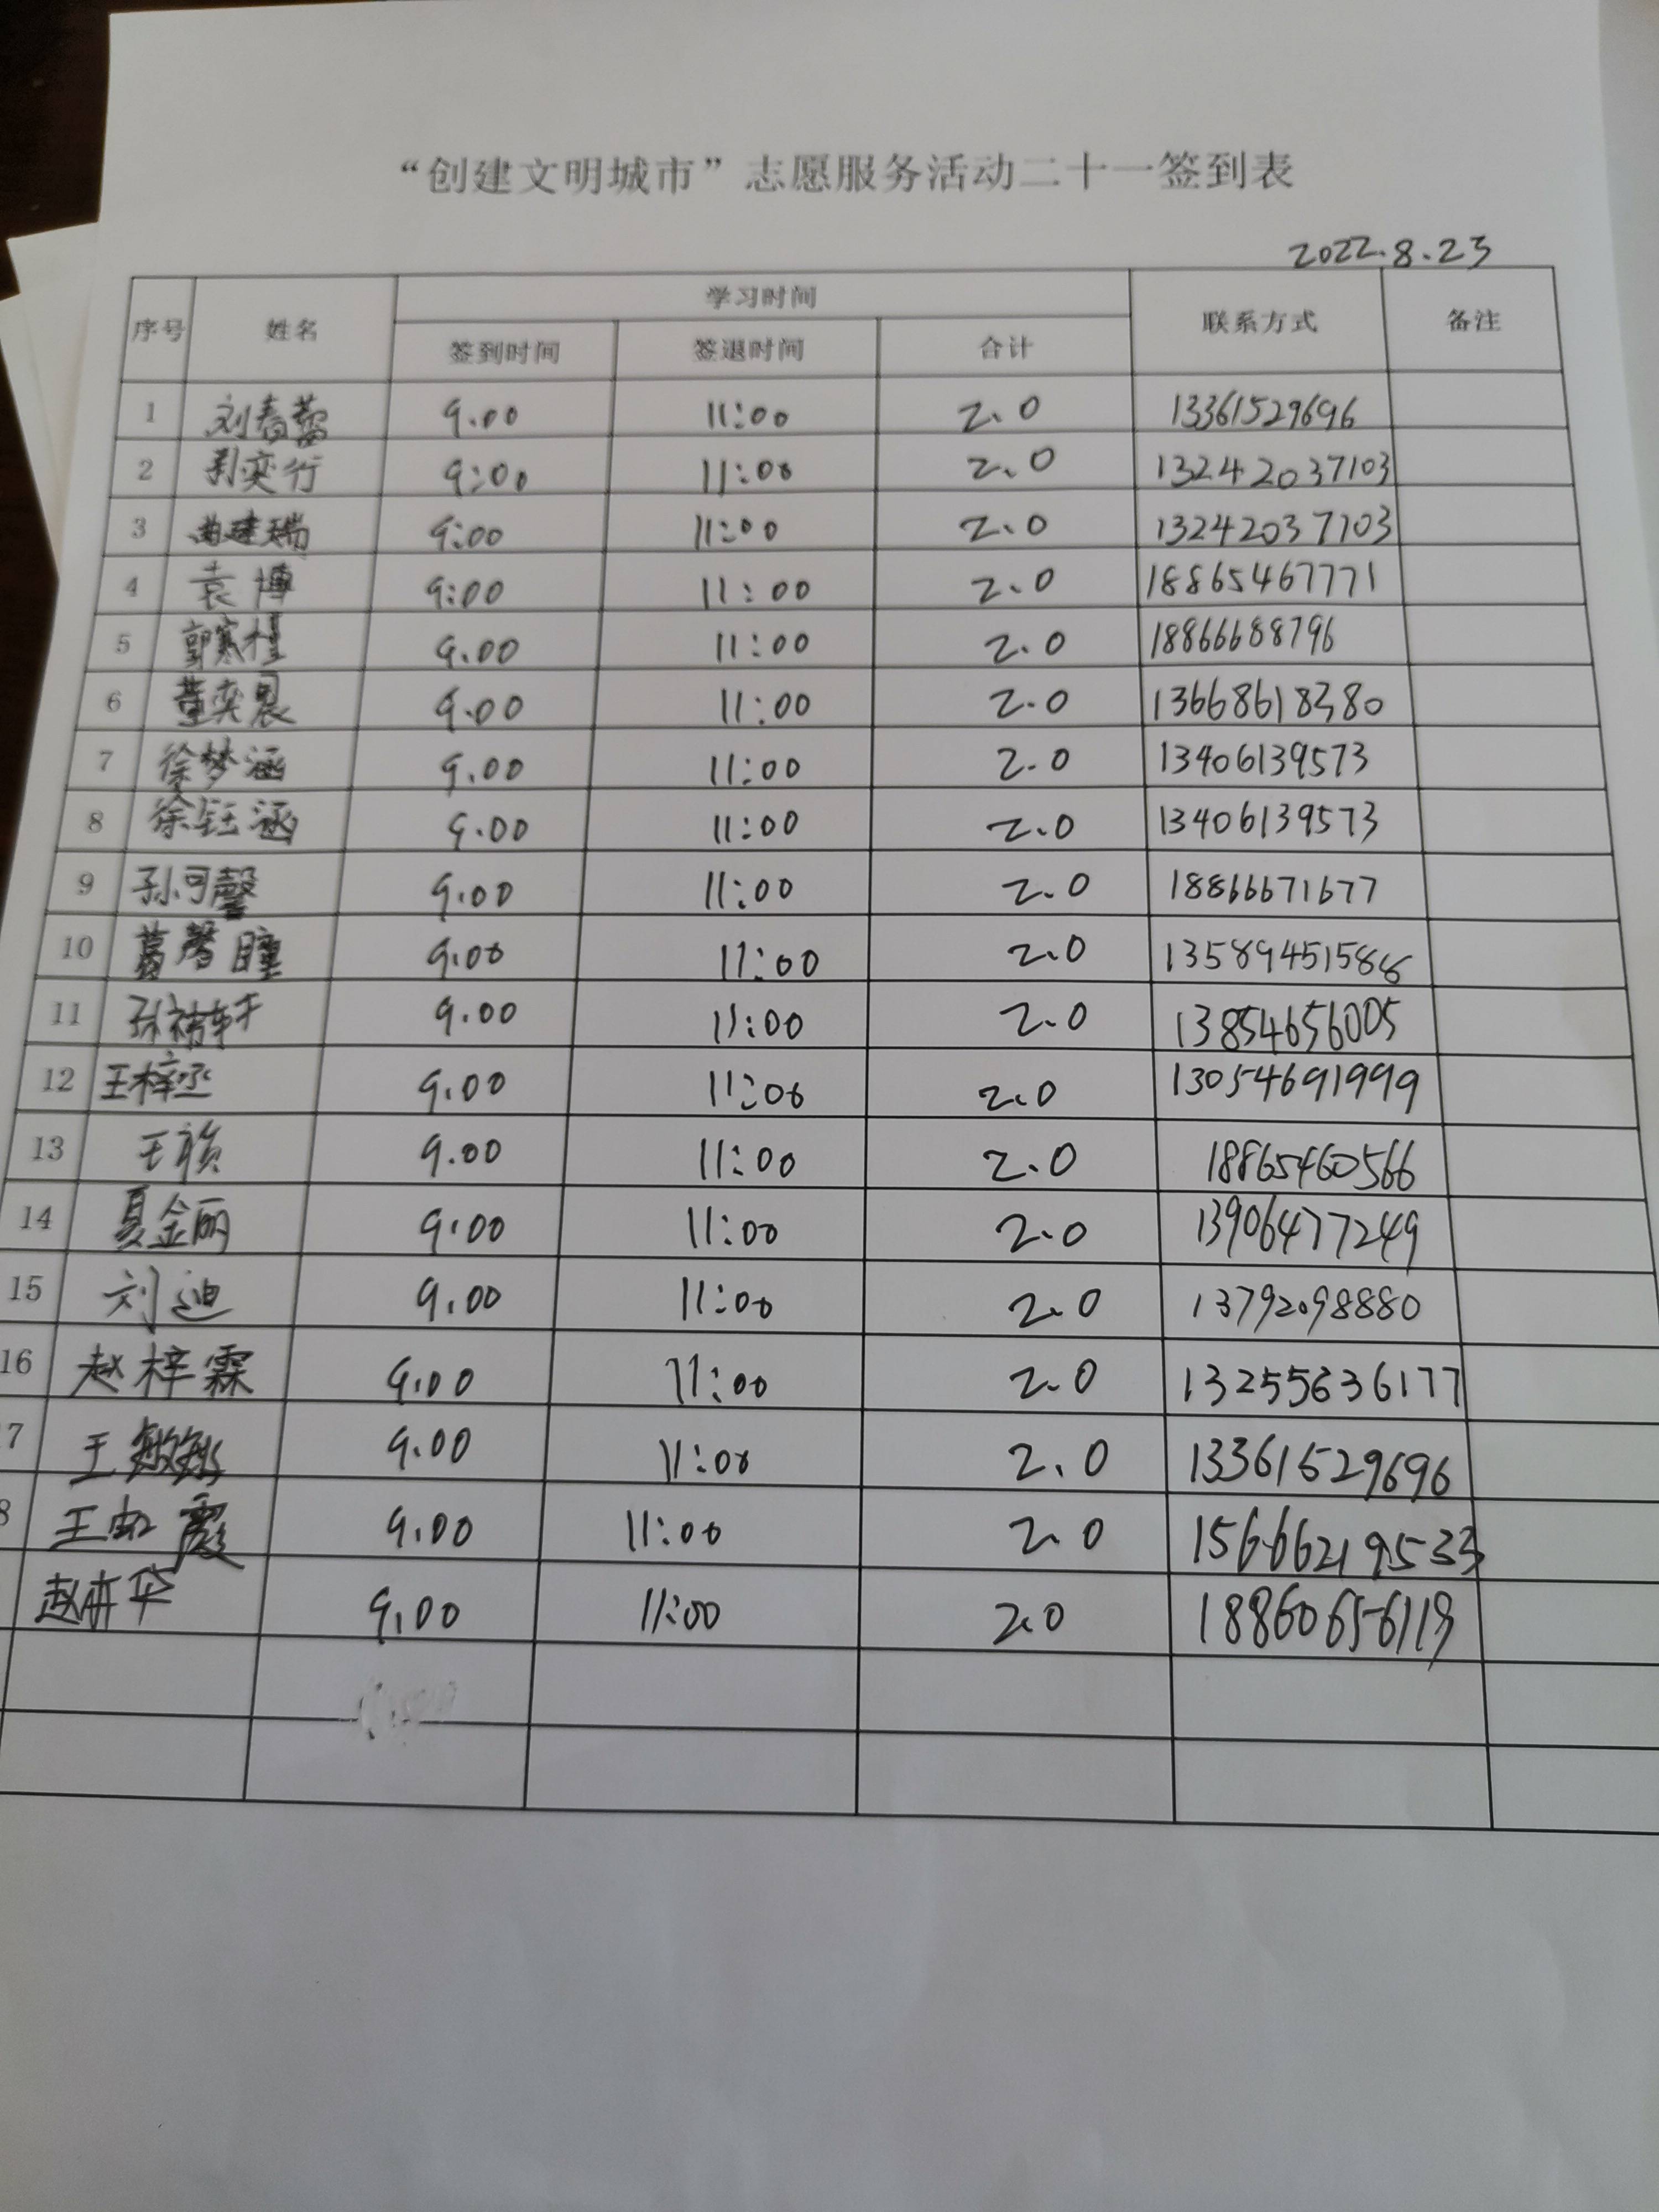 “创建文明城市”志愿服务活动二十一签到表
2022.8.23
序号 姓名 学习时间 联系方式 备注
签到时间 签退时间 合计
1 刘春蕾 9.00 11:00 2.0 13361529696
2 奕行 9:00 11:00 2.0 13242037103
3 曲建瑞 9:00 11:00 2.0 13242037103
4 袁博 9:00 11:00 2.0 18865467771
5 郭寒槿 9.00 11:00 2.0 18866688796
6 董奕晨 9.00 11:00 2.0 13668618380
7 徐梦涵 9.00 11:00 2.0 13406139573
8 徐钰涵 9.00 11:00 2.0 13406139573
9 孙可馨 9.00 11:00 2.0 18866671677
10 葛馨瞳 9.00 11:00 2.0 13589451588
11 孙祐轩 9.00 11:00 2.0 13854656005
12 王梓丞 9.00 11:00 2.0 13054691999
13 王祯 9.00 11:00 2.0 18865460566
14 夏金丽 9.00 11:00 2.0 13906477249
15 刘迪 9.00 11:00 2.0 13792098880
16 赵梓霖 9.00 11:00 2.0 13255636177
7 王敏 9.00 11:00 2.0 13361529696
8 王虹霞 9.00 11:00 2.0 15666219533
赵亦华 9.00 11:00 2.0 18860656119